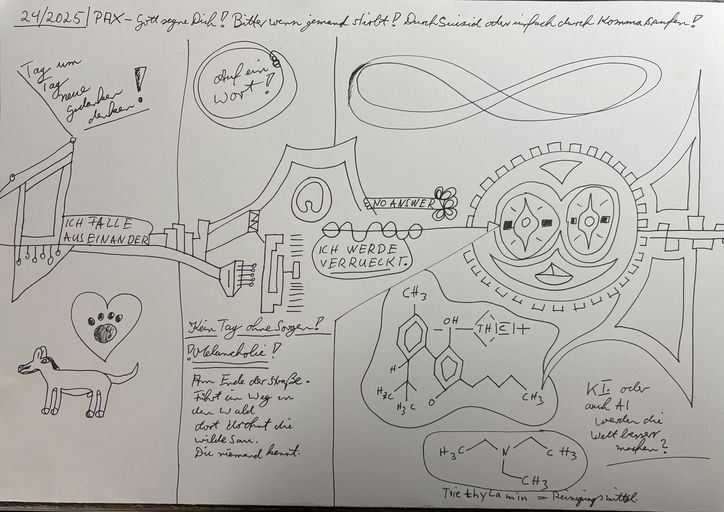 24/2025 | PAX - Gott segne Dich! Bitter wenn jemand stirbt! Durch Suizid oder einfach durch Kommasaufen!
Tag um
Tag
neue
Gedanken
denken!
Auf ein
Wort!
NO ANSWER
ICH FALLE
AUSEINANDER
ICH WERDE
VERRUECKT.
Kein Tag ohne Sorgen!
!Melancholie!
Am Ende der Straße.
Führt ein Weg in
den Wald
dort wohnt die
wilde Sau.
Die niemand kennt.
CH3
OH
TH|C|+
H
H3C
H3C
O
CH3
H3C
N
CH3
CH3
Triethylamin = Reinigungsmittel.
KI. oder
auch AI
werden die
Welt besser
machen?